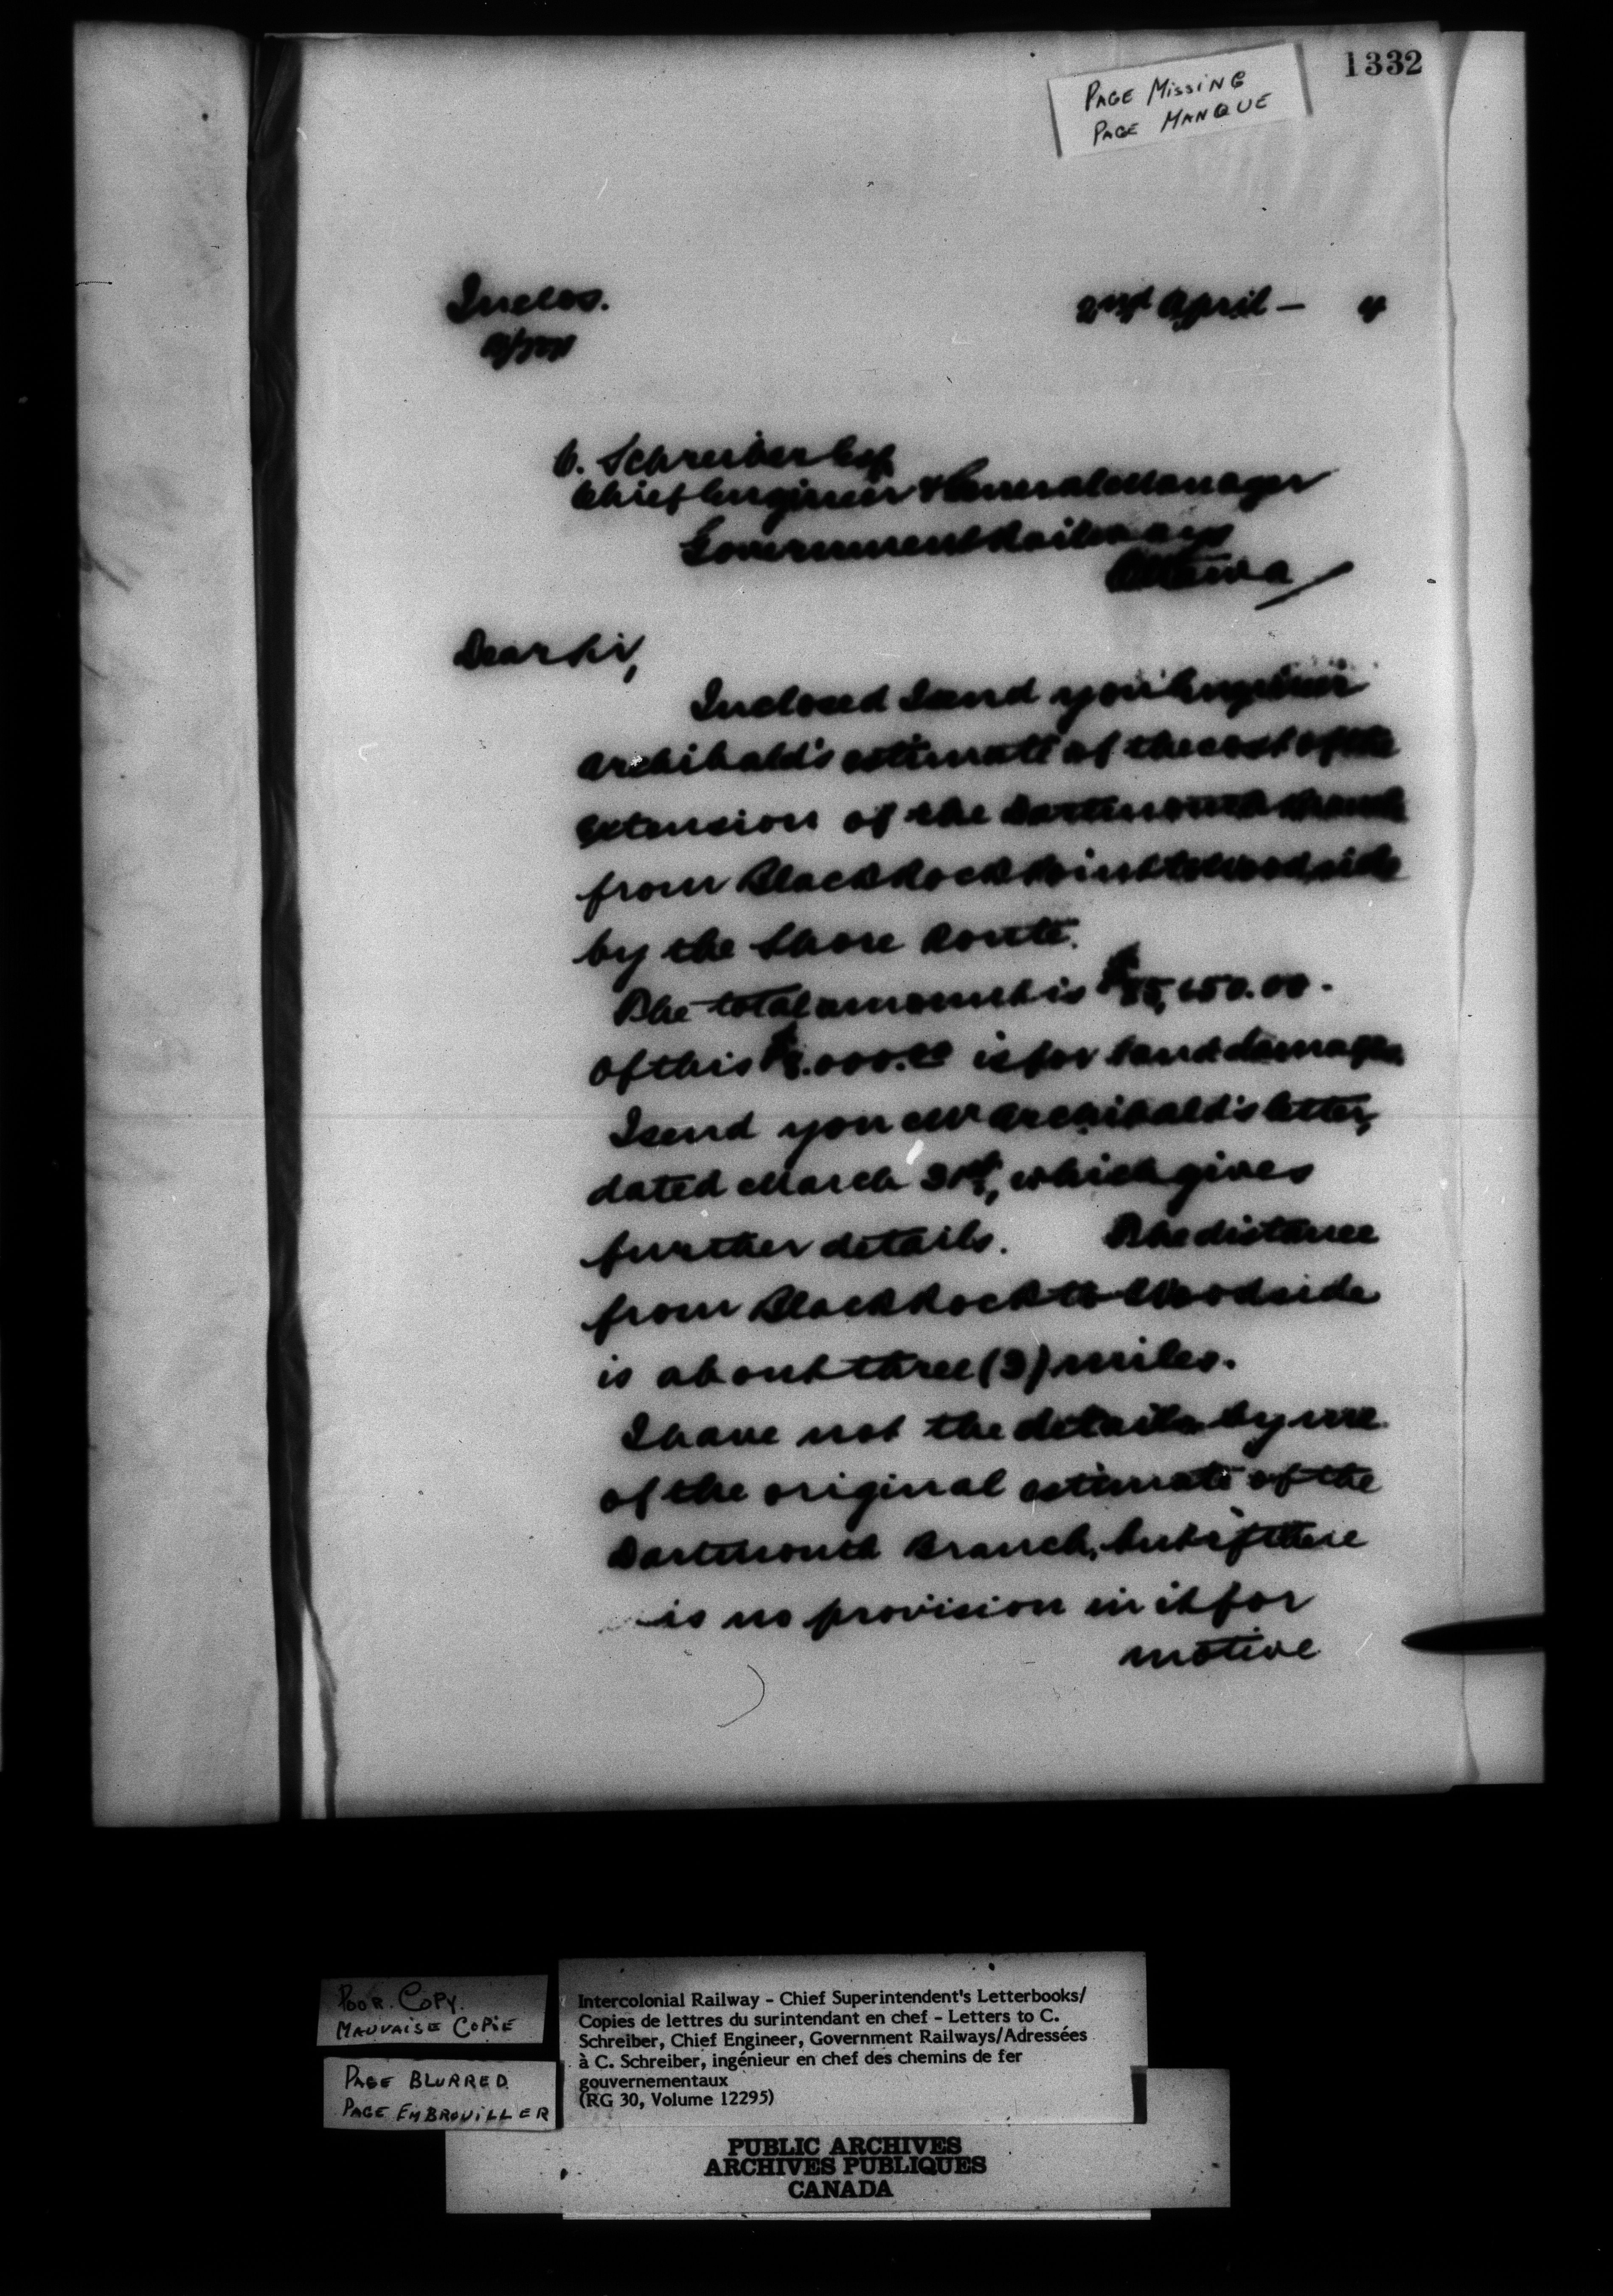 1332
PAGE MISSING
PAGE MANQUE
Inclos.
2nd April - 4
C. Schreiber Esq
Chief Engineer & General Manager
Government Railways
Ottawa
Dear Sir,
Inclosed I send you Engineer
Archibald's estimate of the cost of the
extension of the Dartmouth Branch
from Black Rock Point to Woodside
by the Shore Route.
The total amount is
Of this is for land damages
I send you Mr Archibald's letter,
dated March 31st, which gives
further details. The distance
from Black Rock to Woodside
is about three (3) miles.
I have not the details by me
of the original estimate of the
Dartmouth Branch, but if there
is no provision in it for
motive
POOR COPY.
MAUVAISE COPIE
PAGE BLURRED
PAGE EMBROUILLER
Intercolonial Railway - Chief Superintendent's Letterbooks/
Copies de lettres du surintendant en chef - Letters to C.
Schreiber, Chief Engineer, Government Railways/Adressées
à C. Schreiber, ingénieur en chef des chemins de fer
gouvernementaux
(RG 30, Volume 12295)
PUBLIC ARCHIVES
ARCHIVES PUBLIQUES
CANADA